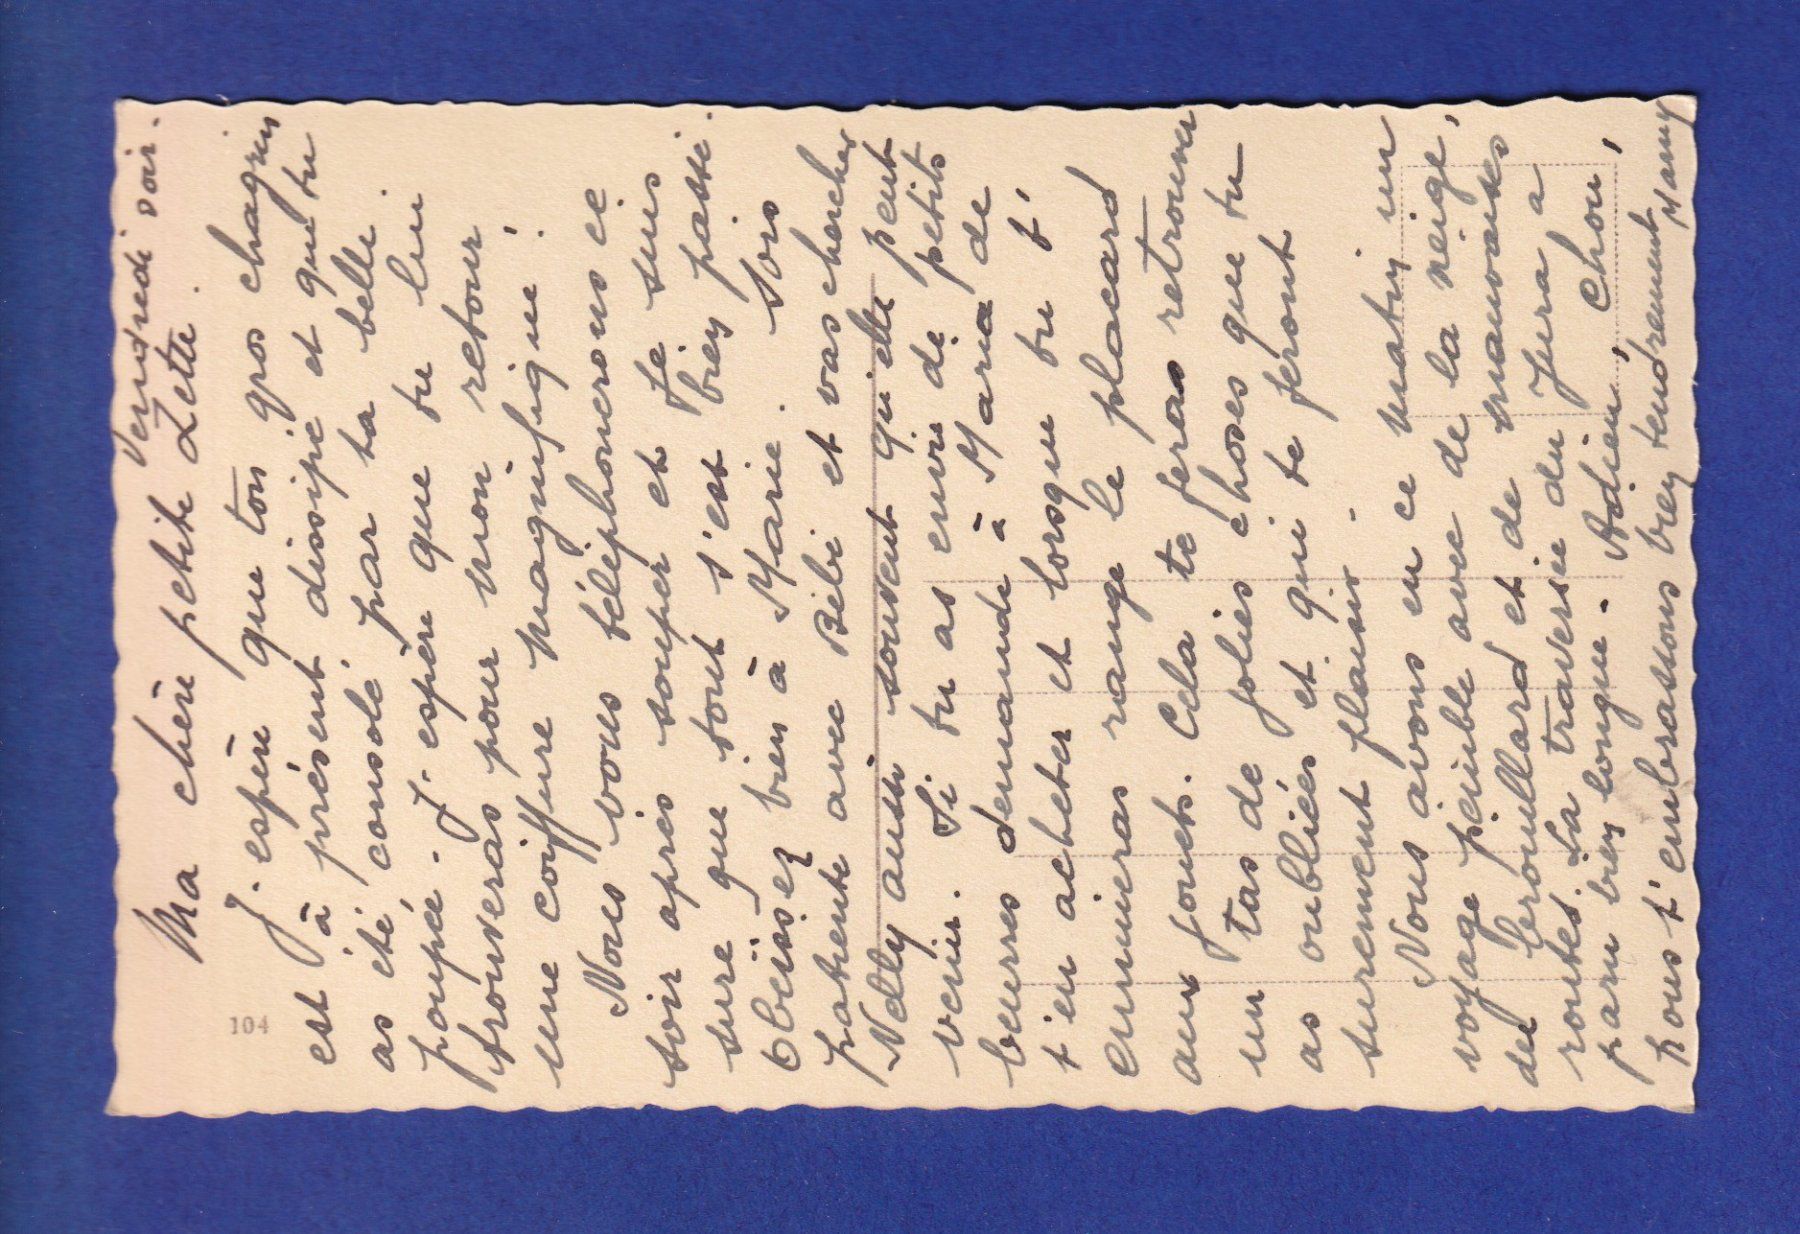 Vendredi soir.
Ma chère petite Zette.
J'espère que ton gros chagrin
est à présent dissipé et que tu
as été consolé par ta belle
poupée. J'espère que tu lui
trouveras pour mon retour
une coiffure magnifique!
Nous vous téléphonerons ce
soir après souper et je suis
sure que tout s'est bien passé.
Obéissez bien à Marie. Sois
patiente avec Bébi et vas chercher
Nelly aussi souvent qu'elle peut
venir. Si tu as envie de petits
beurres demande à Maria de
t'en acheter et lorsque tu t'
ennuieras range le placard
aux jouets. Cela te feras retrouver
un tas de jolies choses que tu
as oubliées et qui te feront
surement plaisir.
Nous avons eu ce matin un
voyage pénible avec de la neige,
du brouillard et de mauvaises
routes. La traversée du Jura a
paru bien longue. Adieu, Chou,
nous t'embrassons bien tendrement
Mamy
104